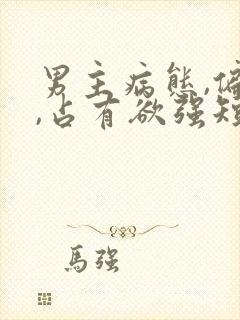 男主病態,偏
,占有欲强短
馬强